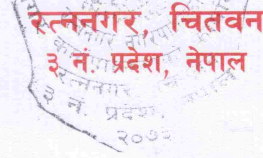 रत्ननगर, चितवन
३ नं. प्रदेश, नेपाल
रत्ननगर
३ नं. प्रदेश.
२०७३